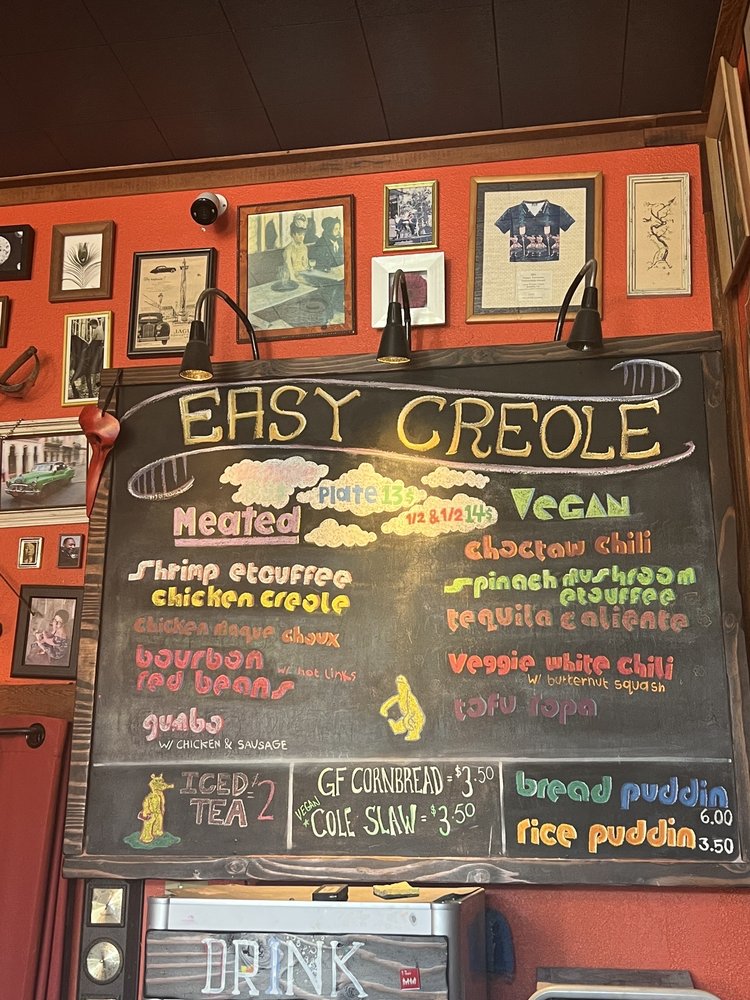 EASY CREOLE
PLATE 13$
1/2 & 1/2 14$
Meated
shrimp etouffee
chicken creole
chicken maque choux
bourbon
red beans w/ hot links
gumbo
W/ CHICKEN & SAUSAGE
VEGAN
choctaw chili
spinach mushroom
etouffee
tequila caliente
veggie white chili
W/ butternut squash
tofu ropa
ICED
TEA $2
GF CORNBREAD = $3.50
VEGAN
COLE SLAW = $3.50
bread puddin
6.00
rice puddin 3.50
DRINK